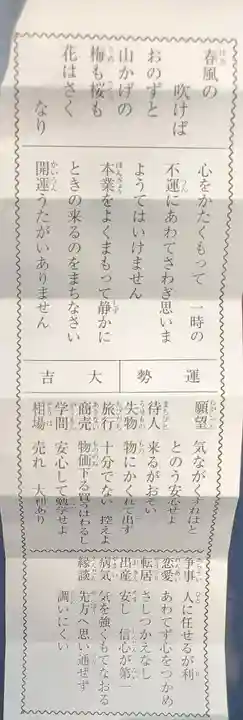 春風の
吹けば
おのずと
山かげの
梅も桜も
花はさく
なり
心をかたくもって 一時の
不運にあわてさわぎ思いま
ようてはいけません
本業をよくまもって静かに
ときの来るのをまちなさい
開運うたがいありません
運勢 大吉
願望 気ながくすればと
とのう安心せよ
待人 来るがおそい
失物 物にかくれて出ず
旅行 十分でない 控えよ
商売 物価下る買うはわるし
学問 安心して勉学せよ
相場 売れ 大利あり
争事 人に任せるが利
恋愛 あわてず心をつかめ
転居 さしつかえなし
出産 安し 信心が第一
病気 気を強くもてなおる
縁談 先方へ思い通ぜず
調いにくい